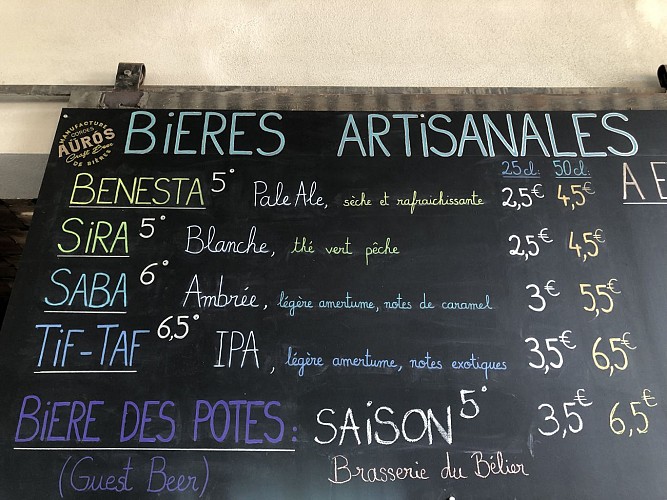 MANUFACTURE
CORDES
AUROS
Craft Beer
DE BIÈRES
BIERES ARTISANALES
25 cl: 50 cl:
BENESTA 5° Pale Ale, sèche et rafraichissante 2,5€ 4,5€
A E
SIRA 5° Blanche, thé vert pêche 2,5€ 4,5€
SABA 6° Ambrée, légère amertume, notes de caramel 3€ 5,5€
TiF-TAF 6,5° IPA, légère amertume, notes exotiques 3,5€ 6,5€
BIERE DES POTES: SAISON 5° 3,5€ 6,5€
(Guest Beer) Brasserie du Bélier